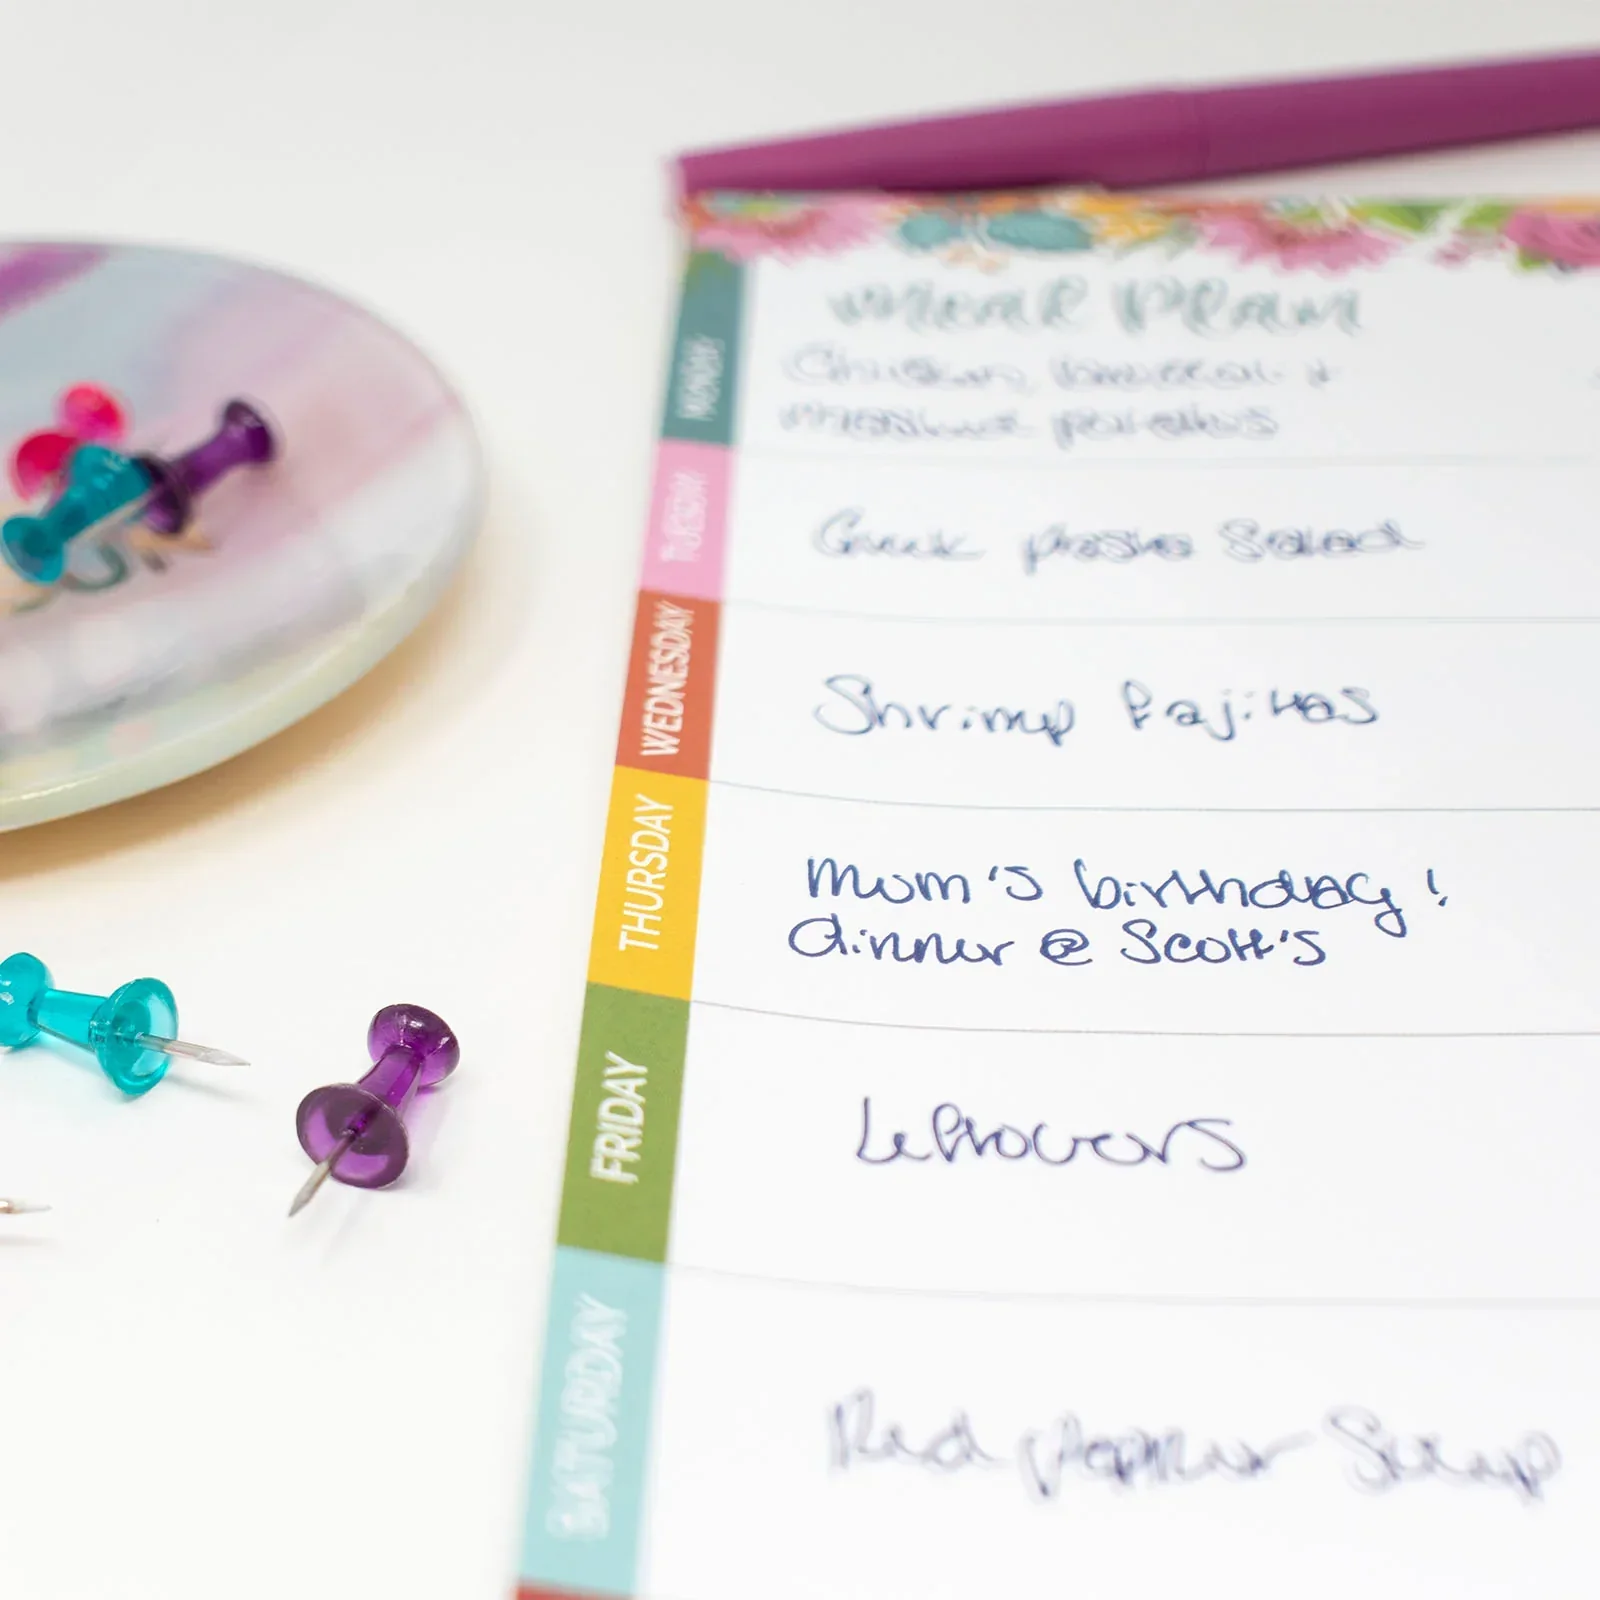 Meal Plan
MONDAY
Chicken &
mashed potatoes
TUESDAY
Greek pasta Salad
WEDNESDAY
Shrimp Fajitas
THURSDAY
Mom's birthday!
dinner @ Scott's
FRIDAY
Leftovers
SATURDAY
Red pepper Soup